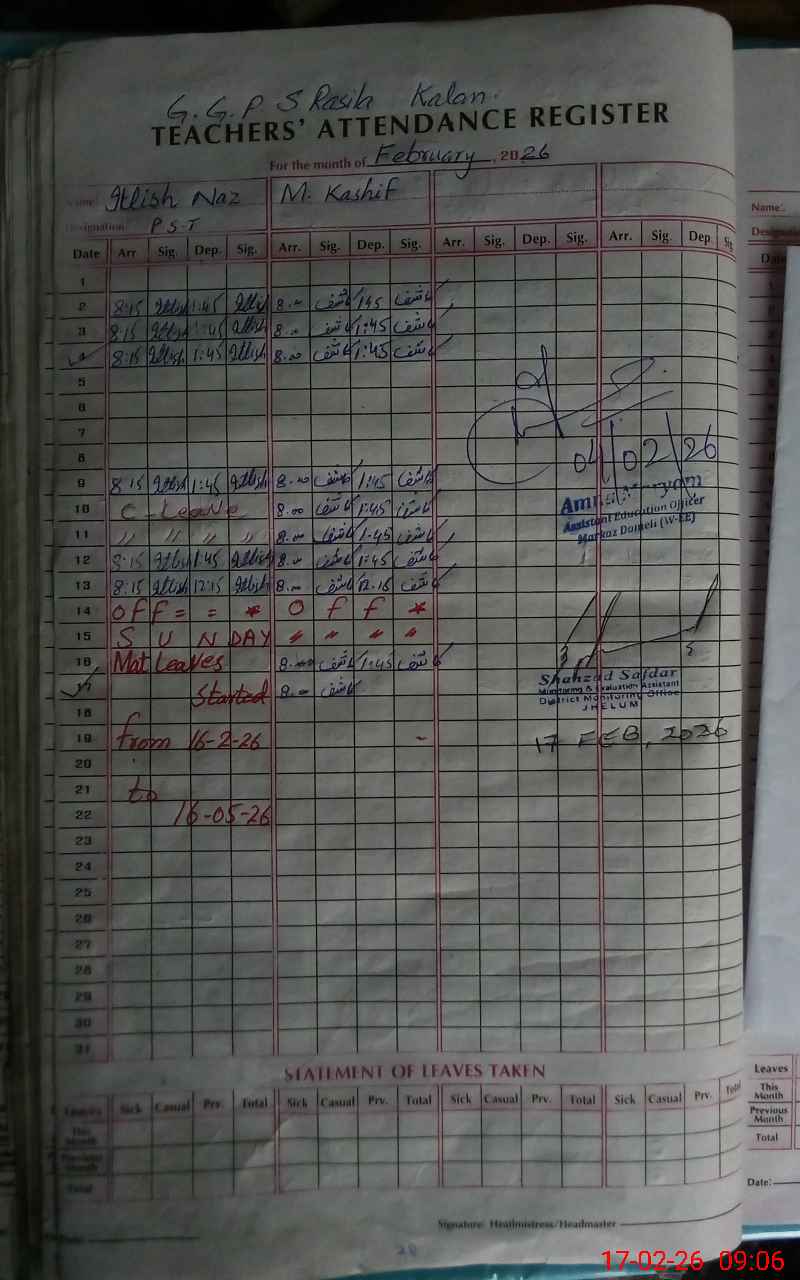 G. G. P. S Rasila Kalan.
TEACHERS' ATTENDANCE REGISTER
For the month of February, 2026
Name: Itlish Naz M. Kashif
Designation P S T
Date Arr Sig. Dep. Sig. Arr. Sig. Dep. Sig. Arr. Sig. Dep. Sig. Arr. Sig. Dep Sig
1
2 8:15 Itlish 1:45 Itlish 8.00 کاشف 1:45 کاشف
3 8:15 Itlish 1:45 Itlish 8.00 کاشف 1:45 کاشف
4 8:15 Itlish 1:45 Itlish 8.00 کاشف 1:45 کاشف
5
6
7
8
04/02/26
9 8:15 Itlish 1:45 Itlish 8.00 کاشف 1:45 کاشف
10 C - Leave 8.00 کاشف 1:45 کاشف
11 " " " " 8.00 کاشف 1:45 کاشف
Assistant Education Officer
Markaz Domeli (W-EE)
12 8:15 Itlish 1:45 Itlish 8.00 کاشف 1:45 کاشف
13 8:15 Itlish 12:15 Itlish 8.00 کاشف 12.15 کاشف
14 OFF = = * O f f *
15 S U N DAY " " " "
16 Mat Leaves 8.00 کاشف 1:45 کاشف
17 Started 8.00 کاشف
Shahzad Safdar
Monitoring & Evaluation Assistant
District Monitoring Office
JHELUM
18
19 from 16-2-26
17 FEB, 2026
20
21 to
22 16-05-26
23
24
25
26
27
28
29
30
31
STATEMENT OF LEAVES TAKEN
Leaves Sick Casual Prv. Total Sick Casual Prv. Total Sick Casual Prv. Total Sick Casual Prv. Total
This Month
Previous Month
Total
Signature: Headmistress/Headmaster
28
Name:
Designatio
Date
Leaves
This Month
Previous Month
Total
Date:
17-02-26 09:06